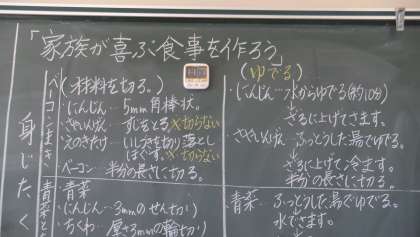 「家族が喜ぶ食事を作ろう」
身じたく
ベーコンまき
(材料を切る。)
・にんじん…5mm角棒状。
・さやいんげん…すじをとる ×切らない
・えのきたけ…いしづきを切り落とし
ほぐす。×切らない
・ベーコン…半分の長さに切る。
青菜
・青菜
・にんじん…3mmのせん切り
・ちくわ…厚さ3mmの輪切り
(ゆでる)
・にんじん…水からゆでる(約10分)
↓
ざるに上げてさます。
・さやいんげん…ふっとうした湯でゆでる。
↓
ざるに上げて冷ます。
半分の長さに切る。
・青菜…ふっとうした湯でゆでる。
↓
水でさます。
↓